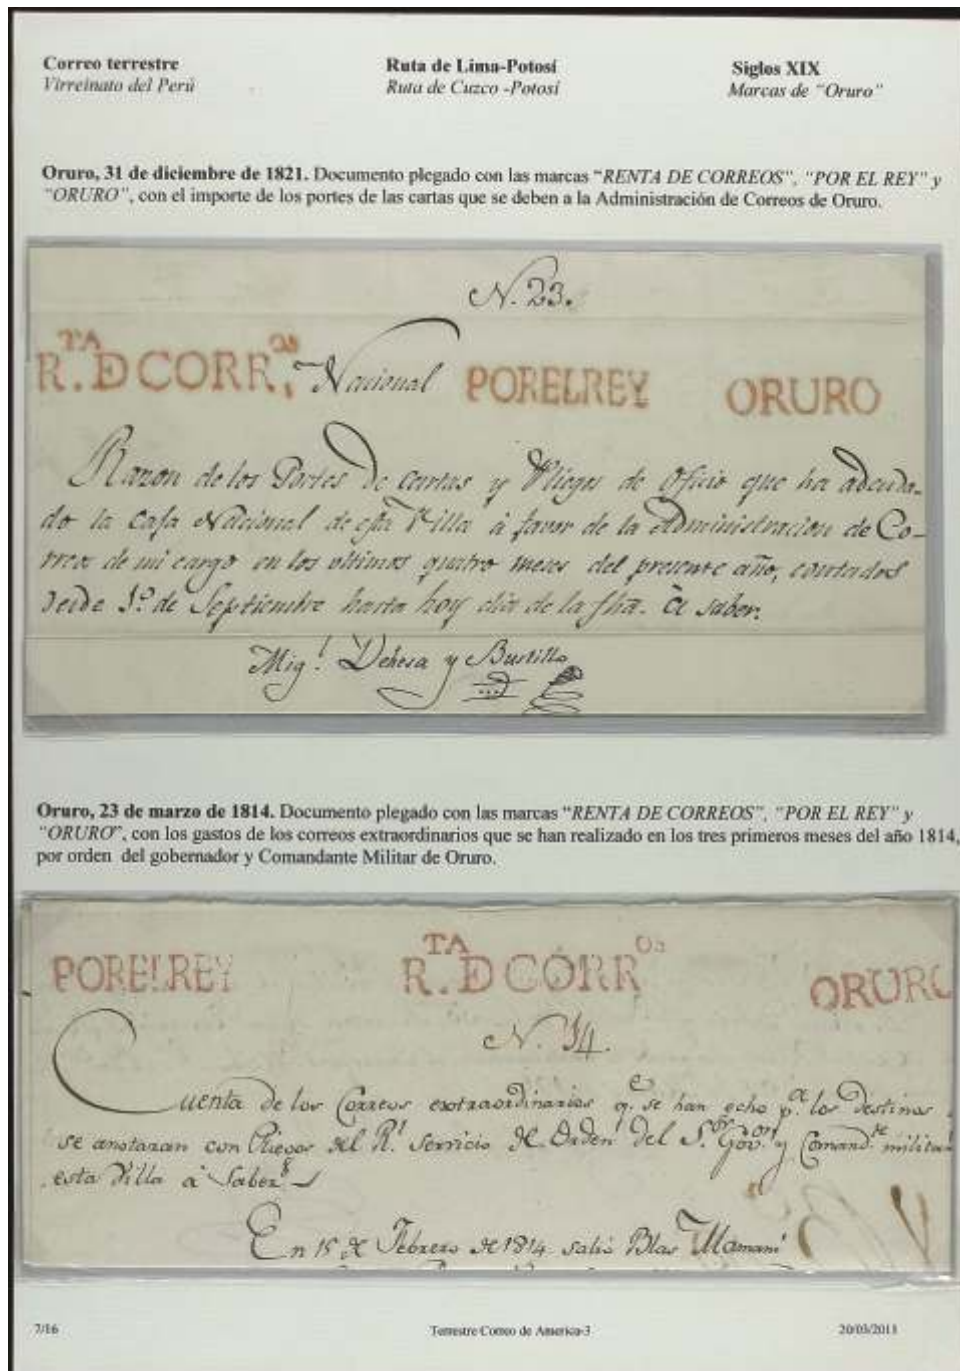 Correo terrestre
Virreinato del Perú
Ruta de Lima-Potosí
Ruta de Cuzco -Potosí
Siglos XIX
Marcas de "Oruro"
Oruro, 31 de diciembre de 1821. Documento plegado con las marcas "RENTA DE CORREOS", "POR EL REY" y
"ORURO", con el importe de los portes de las cartas que se deben a la Administración de Correos de Oruro.
N. 23.
R.TA D CORR.os Nacional POR EL REY ORURO
Razon de los Portes de cartas y Pliegos de Oficio que ha adeuda-
do la Caja Nacional de esta Villa à favor de la Administracion de Co-
rreos de mi cargo en los ultimos quatro meses del presente año, contados
desde 1.º de Septiembre hasta hoy dia de la fha. à saber.
Mig.l Dehesa y Bustillo
Oruro, 23 de marzo de 1814. Documento plegado con las marcas "RENTA DE CORREOS", "POR EL REY" y
"ORURO", con los gastos de los correos extraordinarios que se han realizado en los tres primeros meses del año 1814,
por orden del gobernador y Comandante Militar de Oruro.
POR EL REY R.TA D CORR os ORURO
N. 14.
Cuenta de los Correos extraordinarios q.e se han echo p.a los Destinos
se anotaran con Pliegos del R.l Servicio de Orden del S.or Gov.or y Comand.te militar
esta Villa à Saber
En 15 de Febrero de 1814 salió Blas Mamani
7/16
Terrestre Correo de America-3
20/03/2011